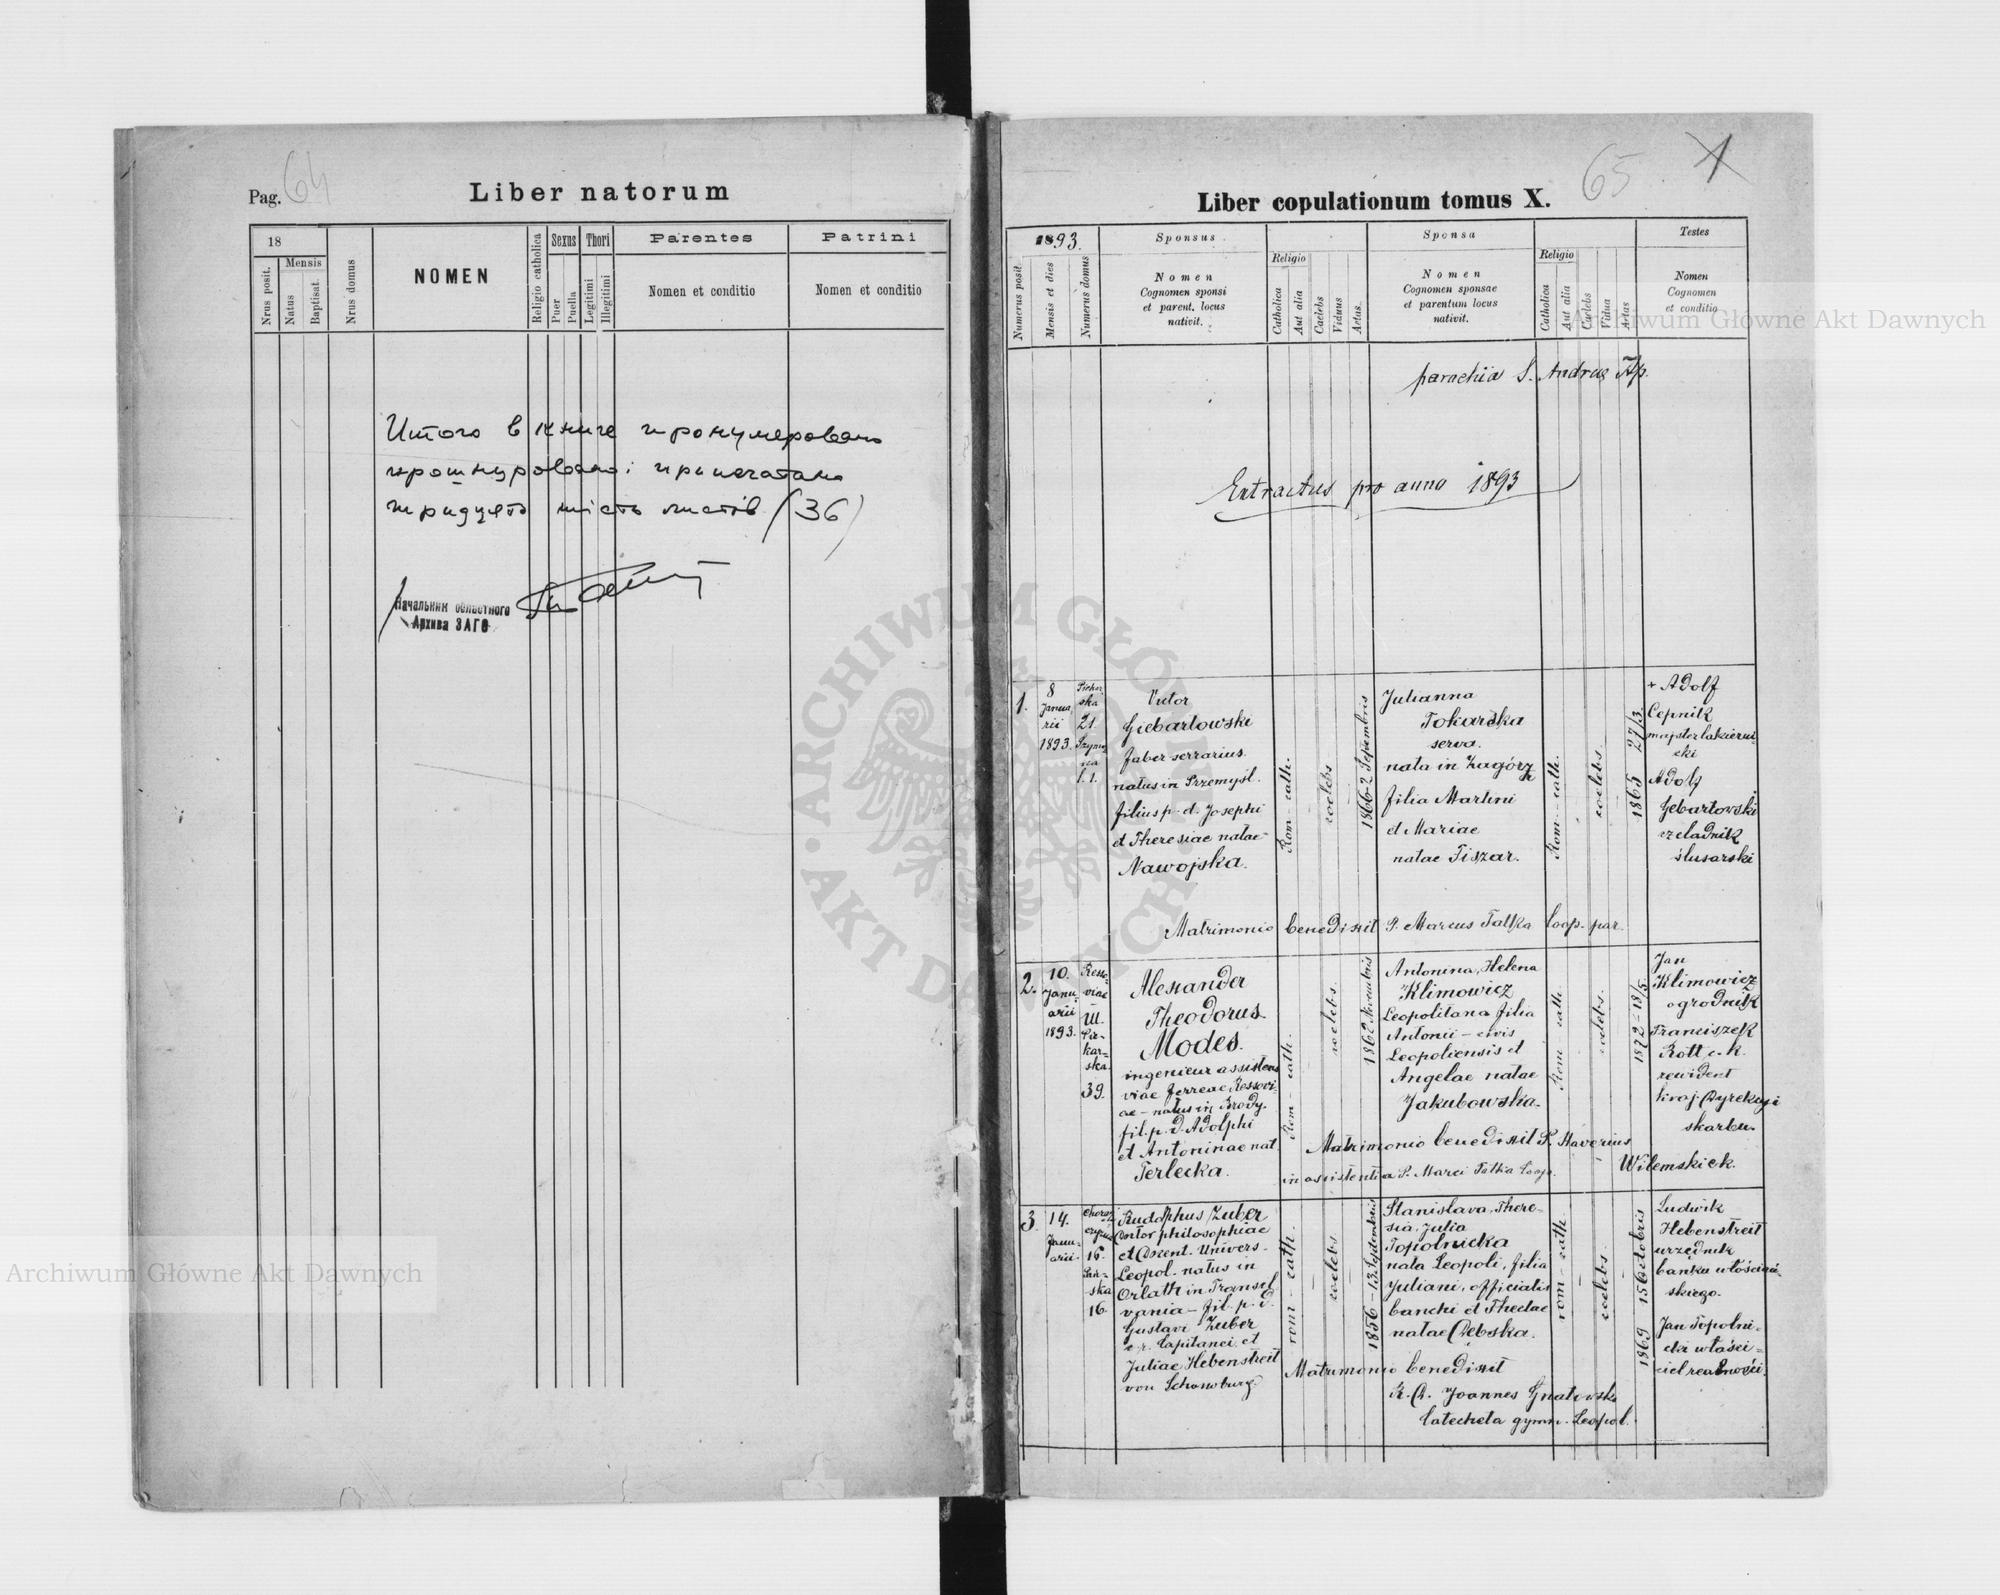 Pag. 64
Liber natorum
18
Nrus posit.
Mensis
Natus
Baptisat.
Nrus domus
NOMEN
Religio catholica
Sexus
Puer
Puella
Thori
Legitimi
Illegitimi
Parentes
Nomen et conditio
Patrini
Nomen et conditio
Итого в книге пронумеровано
прошнуровано і припечатано
тридцять шість листів (36)
Начальник областного
Архива ЗАГС
65
Liber copulationum tomus X.
1893.
Numerus posit.
Mensis et dies
Numerus domus
Sponsus
Nomen
Cognomen sponsi
et parent. locus
nativit.
Religio
Catholica
Aut alia
Caelebs
Viduus
Aetas
Sponsa
Nomen
Cognomen sponsae
et parentum locus
nativit.
Religio
Catholica
Aut alia
Caelebs
Vidua
Aetas
Testes
Nomen
Cognomen
et conditio
parochia S. Andreae Ap.
Extractus pro anno 1893
1.
8
Janua
rii
1893.
ska
21
Victor
Giebartowski
faber serrarius
natus in Przemyśl.
filius p. d. Josephi
et Theresiae natae
Nawojska.
Rom. cath.
coelebs
1866 2 Septembris
Julianna
Tokarska
serva.
nata in Zagórz
filia Martini
et Mariae
natae Tiszar.
Rom. cath.
coelebs.
1865 27/3.
+ Adolf
Cepnik
majster lakierni
cki
Adolf
Gebartowski
czeladnik
ślusarski
Matrimonio benedixit P. Marcus Tatka Coop. par.
2.
10.
Janu
arii
1893.
Resso
viae
III.
Pie
kar
ska
39.
Alexander
Theodorus
Modes.
ingenieur assistens
viae ferreae Ressovi
ae - natus in Brody.
fil. p. d. Adolphi
et Antoninae nat.
Terlecka.
Rom - cath.
coelebs.
1862 Novembris
Antonina, Helena
Klimowicz
Leopolitana filia
Antonii - civis
Leopoliensis et
Angelae natae
Jakubowska.
Rom - cath.
coelebs.
1872 - 18/5.
Jan
Klimowicz
ogrodnik
Franciszek
Rott c. k.
rewident
kraj. Dyrekcyi
skarbu.
Matrimonio benedixit P. Xaverius
Wilemski ck.
in assistentia P. Marci Tatka Coop.
3.
14.
Janu
arii.
16.
ska
16.
Rudolphus Zuber
Doctor philosophiae
et Docent. Univers.
Leopol. natus in
Orlath in Transil
vania - fil. p. d.
Gustavi Zuber
c. r. Capitanei et
Juliae Hebenstreit
von Schonburg.
rom - cath.
coelebs
1856 - 13. Septembris
Stanislava, There-
sia, Julia
Topolnicka
nata Leopoli, filia
Juliani, officialis
banchi et Theclae
natae Dębska.
rom - cath.
coelebs.
1869 15 Octobris
Ludwik
Hebenstreit
urzędnik
banku włościań-
skiego.
Jan Topolni-
cki właści-
ciel realności.
Matrimonio benedixit
R. D. Joannes Gnatowski
Catecheta gymn. Leopol.
Archiwum Główne Akt Dawnych
Archiwum Główne Akt Dawnych
ARCHIWUM GŁÓWNE AKT DAWNYCH